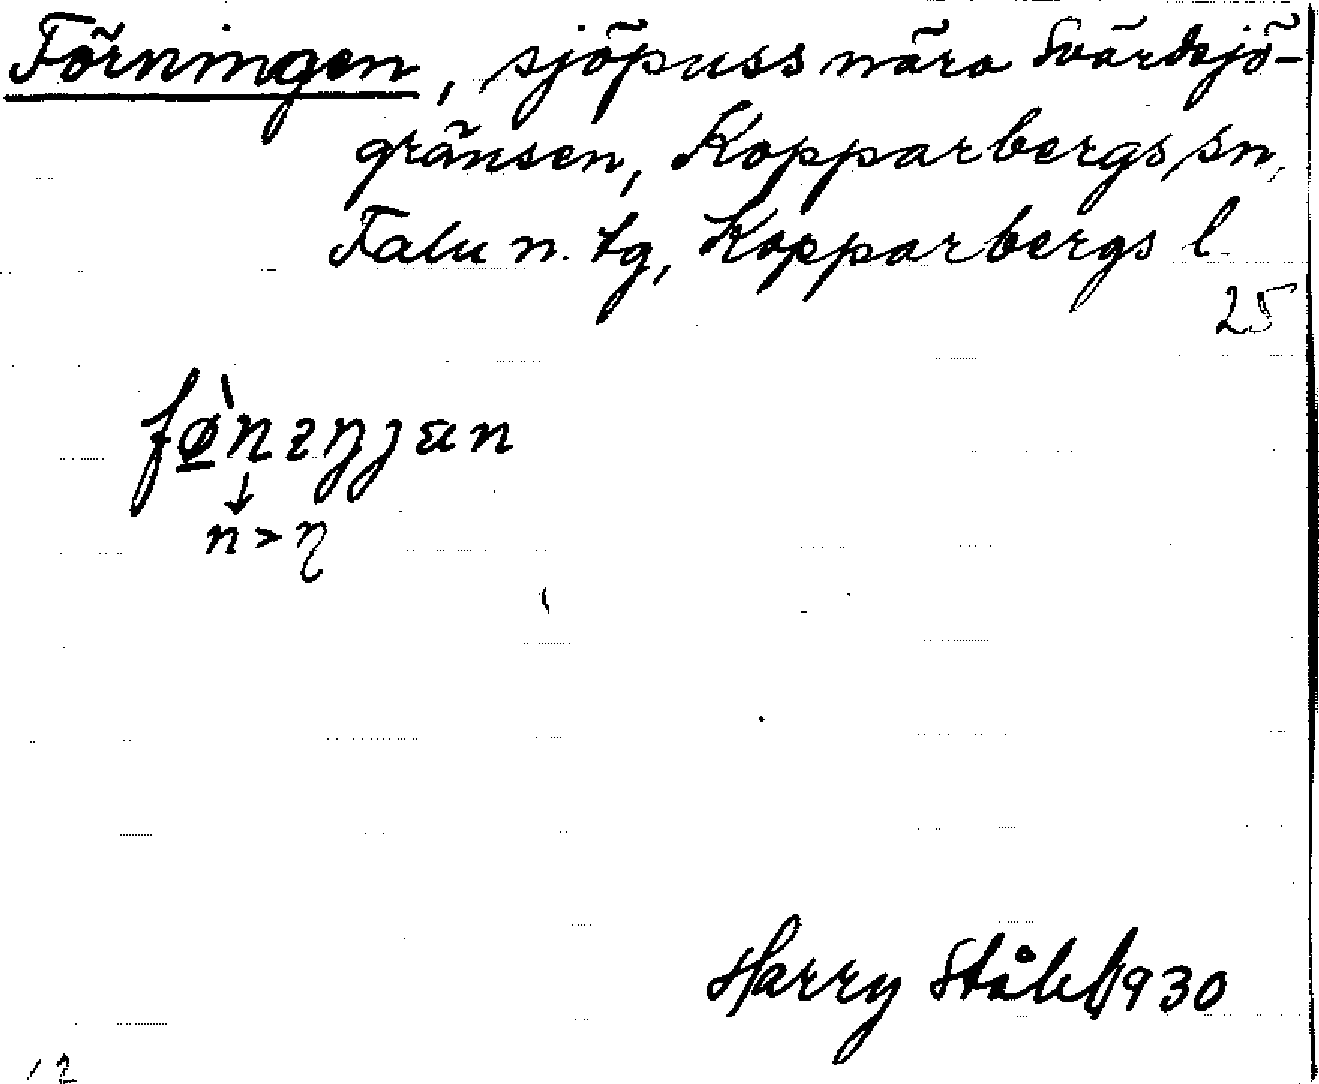 Förningen, sjöpuss nära Svärdsjö-
gränsen, Kopparbergs sn,
Falu n. tg, Kopparbergs l
25
n > η
Harry Ståhl 1930
12